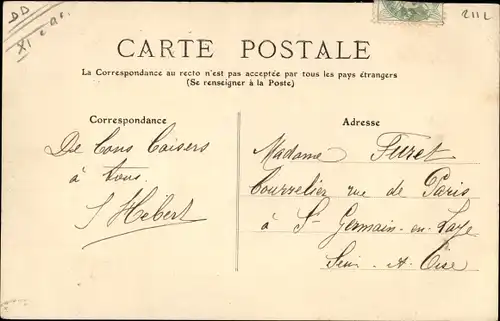 DD
XI e Ar.
211 L
CARTE POSTALE
La Correspondance au recto n'est pas acceptée par tous les pays étrangers
(Se renseigner à la Poste)
Correspondance
De Bons Baisers
à tous.
S Hébert
Adresse
Madame Furet
Bourrelier rue de Paris
à St Germain-en-Laye
Sein-et-Oise